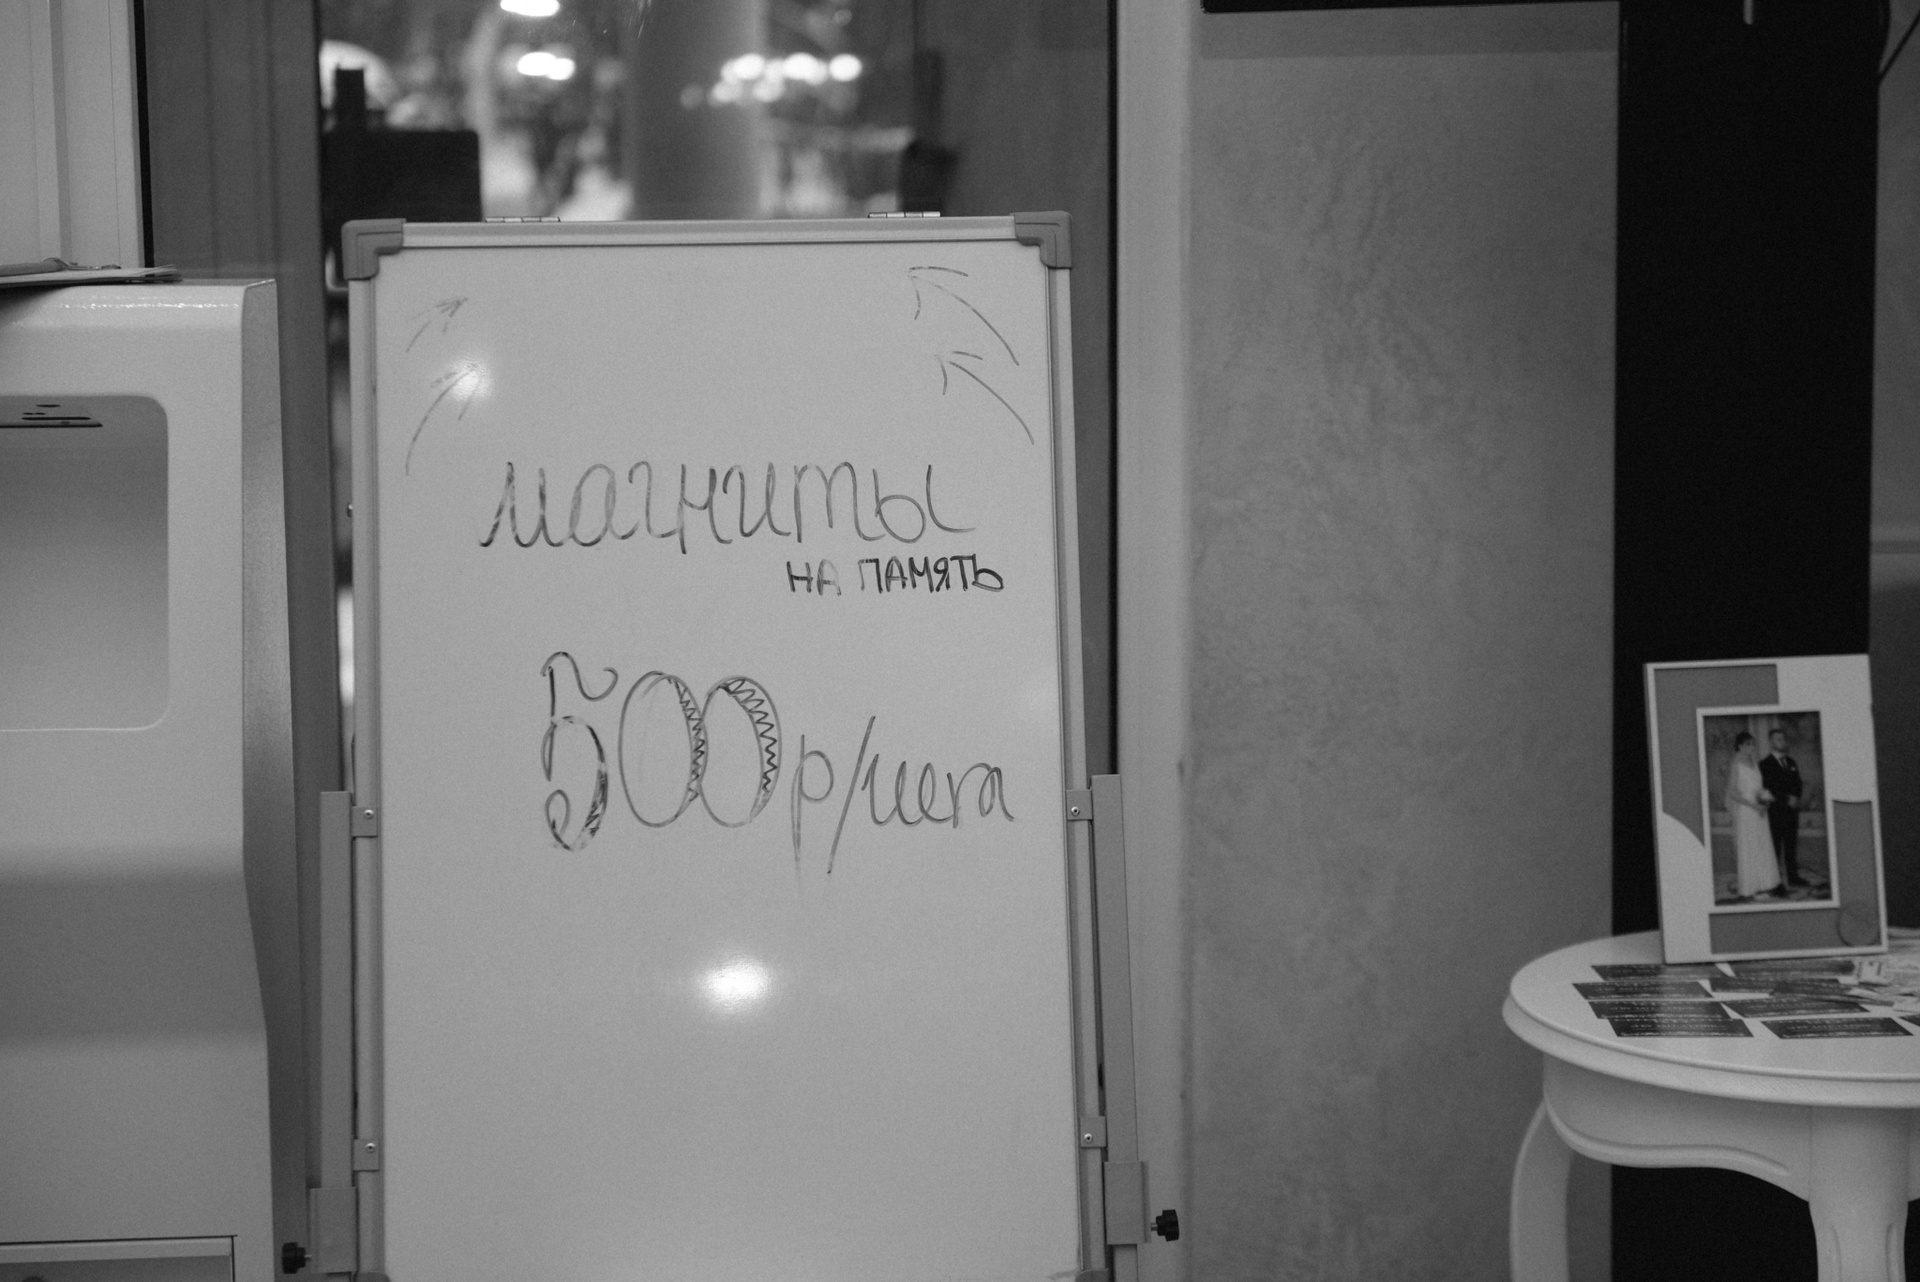 магниты
НА ПАМЯТЬ
500 р/мега